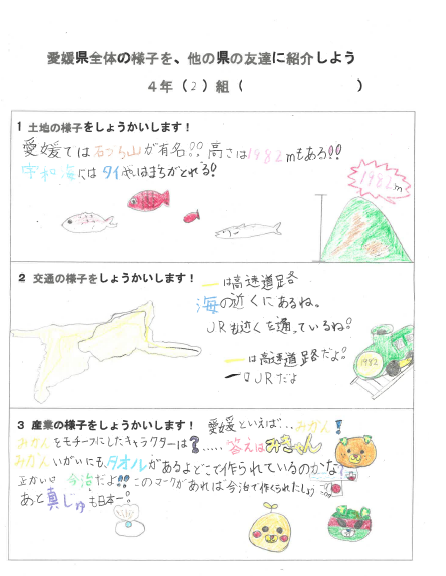 愛媛県全体の様子を、他の県の友達に紹介しよう
4年(2)組(　　　　)
1 土地の様子をしょうかいします!
愛媛では石づち山が有名!! 高さは1982mもある!!
宇和海にはタイやはまちがとれる!
1982m
2 交通の様子をしょうかいします!
ーは高速道路
海の近くにあるね。
JRも近くを通っているね!
ーは高速道路だよ!
ーはJRだよ
1982
3 産業の様子をしょうかいします!
愛媛といえば...みかん!
みかんをモチーフにしたキャラクターは?.....答えはみきゃん
みかんいがいにも、タオルがあるよどこで作られているのかな?
正かいは今治だよ!!このマークがあれば今治で作くられたしょう
あと真じゅも日本一!